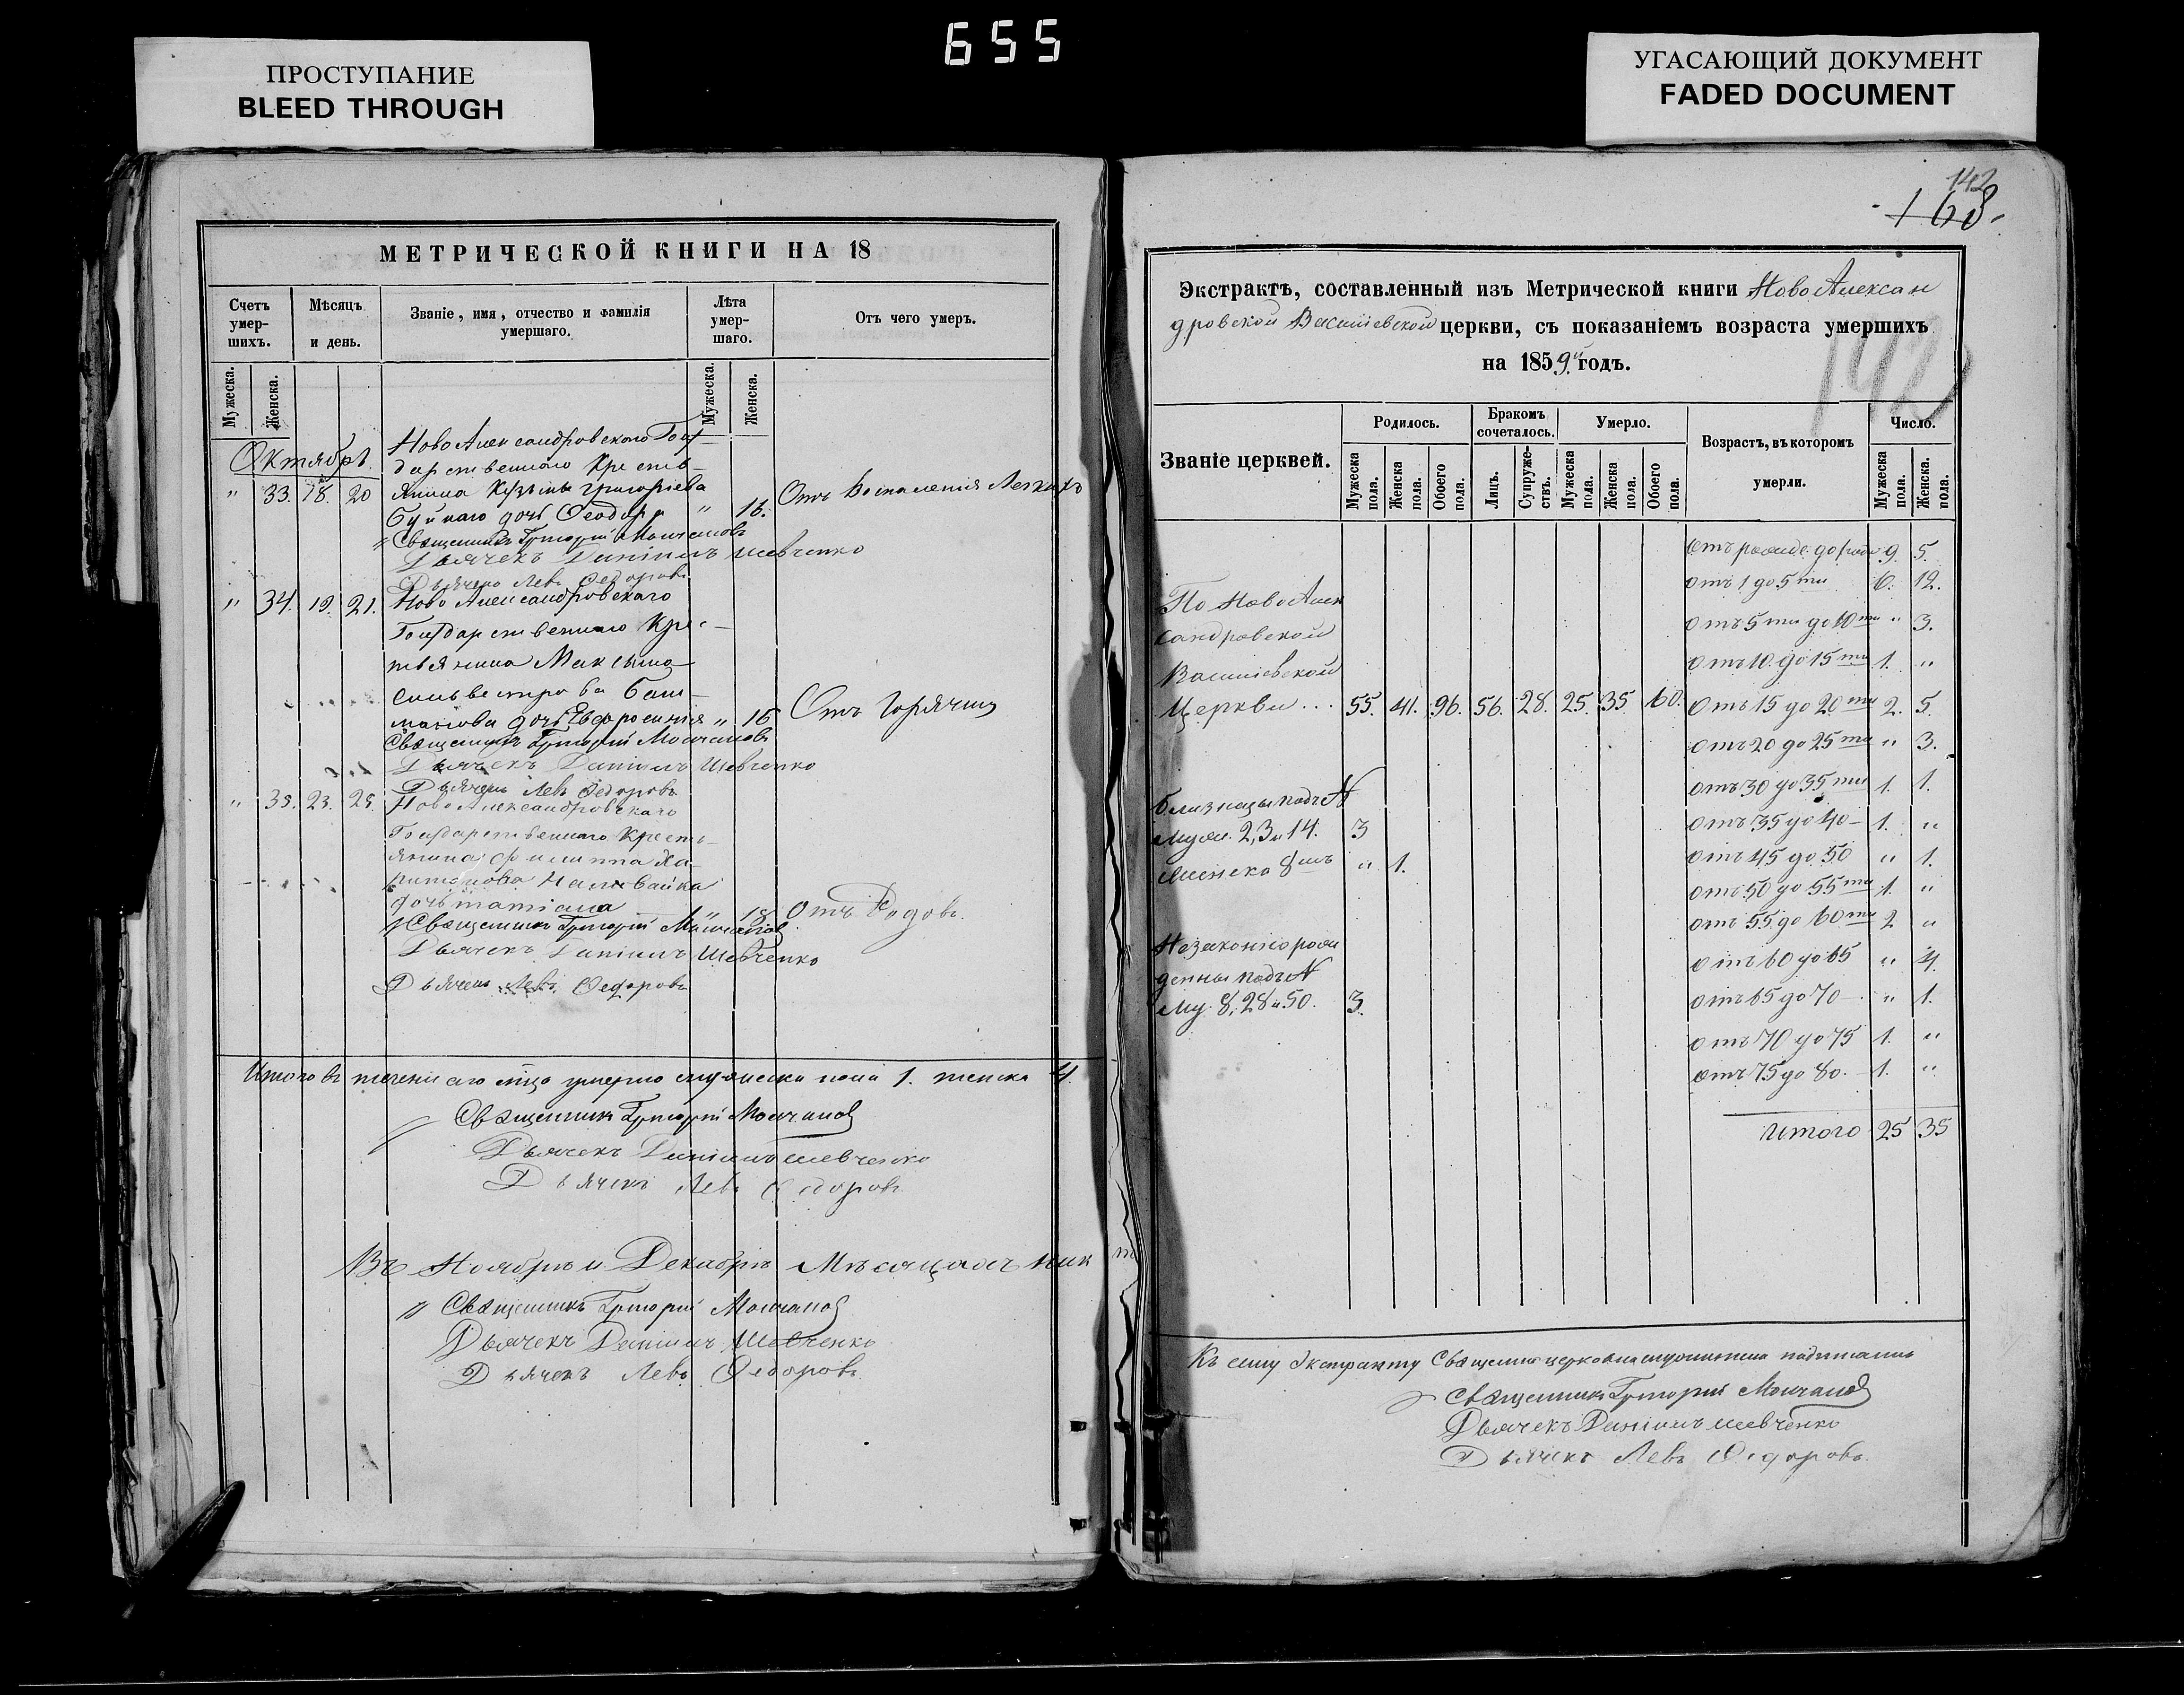 655
ПРОСТУПАНИЕ
BLEED THROUGH
УГАСАЮЩИЙ ДОКУМЕНТ
FADED DOCUMENT
МЕТРИЧЕСКОЙ КНИГИ НА 18
Счетъ умер- шихъ.
Мѣсяцъ и день.
Званіе, имя, отчество и фамилія умершаго.
Лѣта умер- шаго.
Отъ чего умеръ.
Мужеска. Женска. Мужеска. Женска.
Октябрь.
Ново Александровского Госу
дарственнаго Крестъ-
" 33. 18. 20 янина Кузьмы Григоріева
дочь Феодора " 16. Отъ Воспаленія Легкихъ
Священникъ Григорій Молчановъ
Дьячекъ Даніилъ Шевченко
Дьячекъ Левъ Федоровъ
" 34. 19. 21. Ново Александровскаго
Государственнаго Кре-
стьянина Максима
Сильвестрова Баш-
макова дочь Ефросинія " 16 Отъ Горячки
Священникъ Григорій Молчановъ
Дьячекъ Даніилъ Шевченко
Дьячекъ Левъ Федоровъ
" 35. 23. 25. Ново Александровскаго
Государственнаго Кресть-
янина Филиппа Ха-
ритонова Наливайка
дочь татіана " 18 Отъ Родовъ.
Священникъ Григорій Молчановъ
Дьячекъ Даніилъ Шевченко
Дьячекъ Левъ Федоровъ
Итого въ теченіи сего м-ца умерло мужеска пола 1. женска 4.
Священникъ Григорій Молчановъ
Дьячекъ Даніилъ Шевченко
Дьячекъ Левъ Федоровъ
Въ Ноябрѣ и Декабрѣ Мѣсяцахъ ник
Священникъ Григорій Молчановъ
Дьячекъ Даніилъ Шевченко
Дьячекъ Левъ Федоровъ
142
168.
142
Экстрактъ, составленный изъ Метрической книги Ново Алексан
дровской Васильевской церкви, съ показаніемъ возраста умершихъ
на 1859й годъ.
Званіе церквей.
Родилось.
Бракомъ сочеталось.
Умерло.
Возрастъ, въ которомъ умерли.
Число.
Мужеска пола. Женска пола. Обоего пола. Лицъ. Супруже- ствъ. Мужеска пола. Женска пола. Обоего пола. Мужеска пола. Женска. пола.
Отъ рожде. до года 9. 5.
отъ 1 до 5ти 6. 12.
По Ново Алек
отъ 5ти до 10ти " 3.
сандровской
отъ 10. до 15ти 1. "
Васильевской
Церкви... 55. 41. 96. 56. 28. 25. 35 60. Отъ 15 до 20ти 2. 5.
отъ 20 до 25ти " 3.
отъ 30 до 35ти 1. 1.
близнецы подъ №
отъ 35 до 40 - 1. "
Муж. 2, 3 и 14. 3
отъ 45 до 50 " 1.
Женска 8мъ " 1.
отъ 50 до 55ти 1. "
отъ 55 до 60ти 2 "
Незаконнорож
отъ 60 до 65 " 4.
денны подъ №
отъ 65 до 70 - " 1.
Му. 8, 28 и 50. 3.
отъ 70 до 75 1. "
отъ 75 до 80. - 1. "
Итого 25 35
Къ сему Экстракту Священно церковнослужители подписались
Священникъ Григорій Молчановъ
Дьячекъ Даніилъ Шевченко
Дьячекъ Левъ Федоровъ